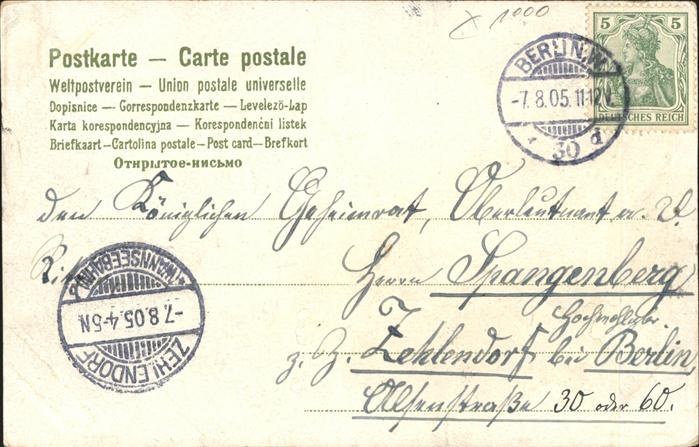 x 1000
Postkarte — Carte postale
Weltpostverein — Union postale universelle
Dopisnice — Correspondenzkarte — Levelező-Lap
Karta korespondencyjna — Korespondenčni listek
Briefkaart — Cartolina postale — Post card — Brefkort
Открытое-письмо
BERLIN.W.
-7.8.05.11-12V.
* 30 d
5 5
DEUTSCHES REICH
den Königlichen Geheimrat, Oberleutnant a. D.
Herrn Spangenberg
Hochwohlgeb.
z. Z. Zehlendorf bei Berlin
Alsenstraße 30 oder 60.
*(WANNSEEBAHN)
-7.8.05.4-5N
ZEHLENDORF